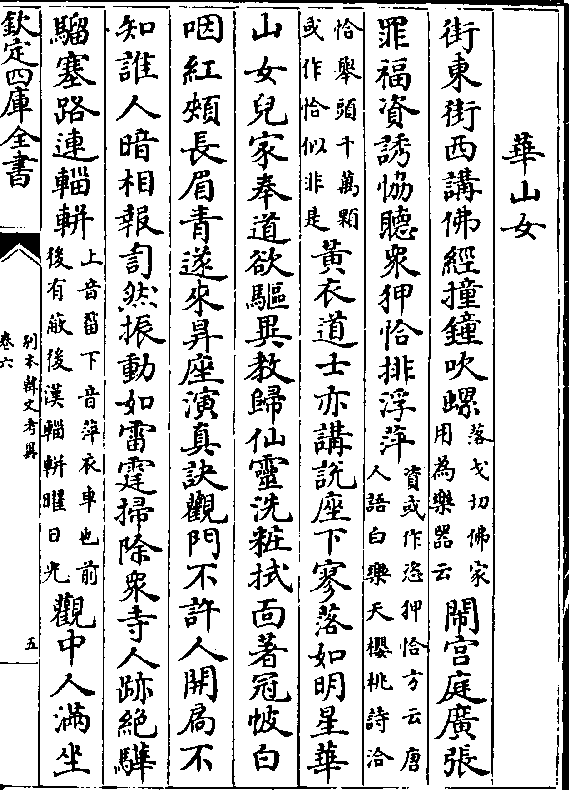 華山女
街東街西講佛經撞鐘吹螺落戈切佛家用為樂器云鬧宫庭廣張
罪福資誘恊聽衆狎恰排浮萍資或作恣狎恰方云唐人語白樂天櫻桃詩洽
恰舉頭千萬顆或作恰似非是黄衣道士亦講説座下寥落如明星華
山女兒家奉道欲驅異教歸仙靈洗粧拭面著冠帔白
咽紅頰長眉青遂來昇座演真訣觀門不許人開扃不
知誰人暗相報訇然振動如雷霆掃除衆寺人跡絶驊
騮塞路連輜軿上音菑下音萍衣車也前後有蔽後漢輜軿曜日光觀中人滿坐
欽定四庫全書
别本韓文考異
卷六
五